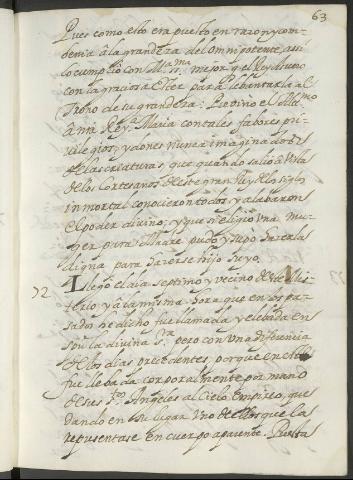 63
Pues como esto era puesto en razon y con-
benia a la grandeza del omnipotente, assi
lo cumplio con Ma. ss.ma mejor q el Rey Asuero
con la graciosa Ester para lebantarla al
trono de su grandeza: Prebino el Alt.mo
a nra Reyna Maria con tales fabores pri-
vilegios, y dones nunca imaginados
de las criaturas, que quando salio a vista
de los cortesanos de este gran Rey de los siglos
inmortal conocieron todos y alabaron
el poder divino, y que si eligio una mu-
ger para Madre pudo y supo hacerla
digna para hacerse hijo suyo.
72 Llego el dia septimo y vecino de este Mis-
terio, y a la misma hora que en los pa-
sados he dicho fue llamada y elebada en
spu la divina s.ra pero con una diferencia
de los dias precedentes, porque en este
fue llebada corporalmente por mano
de sus s.tos Angeles al Cielo Empireo, que
dando en su lugar uno de ellos que la
representase en cuerpo aparente. Puesta